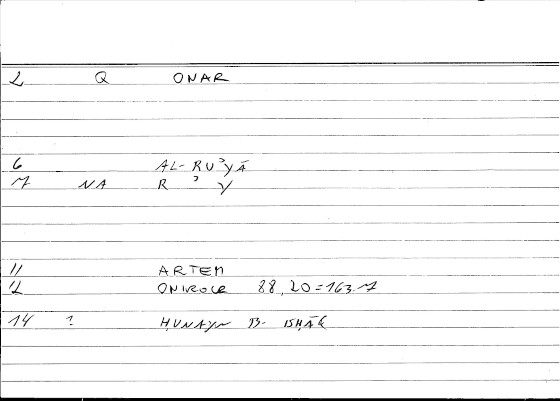 2 Q ONAR
6 AL-RUʾYĀ
7 NA R ʾ Y
11 ARTEM
12 ONIROCR 88,20=163.7
14 ? ḤUNAYN B. ISḤĀḲ